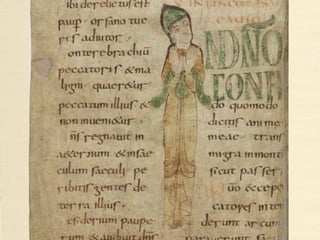 ibi derelictus est
paup̄ orfano tue
ris adiutor
onterebrachiū
peccatoris & ma
ligni quaer&ur
peccatum illius &
non inueni&ur
dn̄s regnabit in
a&ernum & insae
culum saeculi pe
ribitis gentes de
terra illius
esiderium paupe
rum exaudiuit dn̄s
NDN̄O
CONFI
do quomodo
dicitis animae
meae trans
migra in mont
sicut passer
ecce pec
catores inten
derunt arcum